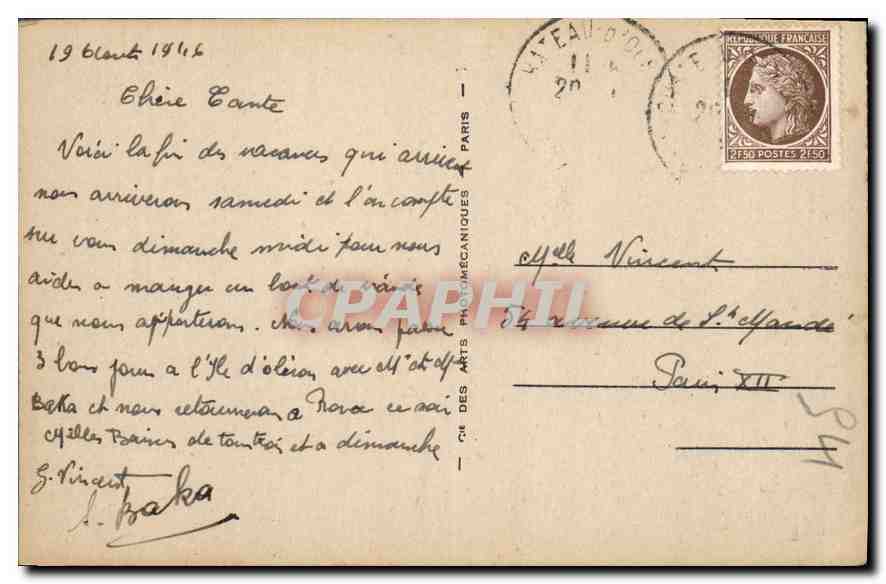 19 Août 1946
Chère Tante
Voici la fin des vacances qui arrivent
nous arriverons samedi et l'on compte
sur vous dimanche midi pour nous
aider a manger un bout de viande
que nous apporterons. Nous avons passer
3 bons jours a l'Ile d'oléron avec Mr et Mme
Baka et nous retournerons a ce soir
Mjlles Baisers de tous trois et a dimanche
G. Vincent
A. Baka
— Cie DES ARTS PHOTOMÉCANIQUES — PARIS —
CPAPHIL
HATEAU-D'OL
11
20
RÉPUBLIQUE FRANÇAISE
2F50 POSTES 2F50
Melle Vincent
54 avenue de St Mandé
Paris XII
54